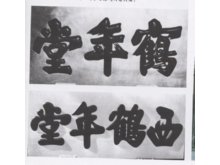 鶴年堂
西鶴年堂